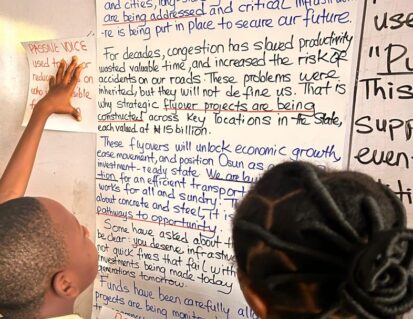 and cities, long-
are being addressed and critical infrastruc
-re is being put in place to secure our future.
For decades, congestion has slowed productivity
wasted valuable time, and increased the risk of
accidents on our roads. These problems were
inherited, but they will not define us. That is
why strategic flyover projects are being
constructed across key locations in the State,
each valued at ₦15 billion.
These flyovers will unlock economic growth,
ease movement, and position Osun as a
investment-ready state. We are
tion for an efficient transport
works for all and sundry.
about concrete and steel, it is
pathways to opportunity.
Some have asked about
be clear: you deserve infrast
not quick fixes that fail with
investments being made today
generations tomorrow.
Funds have been carefully all
projects are being monitor
PASSIVE VOICE
used to
on
use
"Pu
This
supp
even